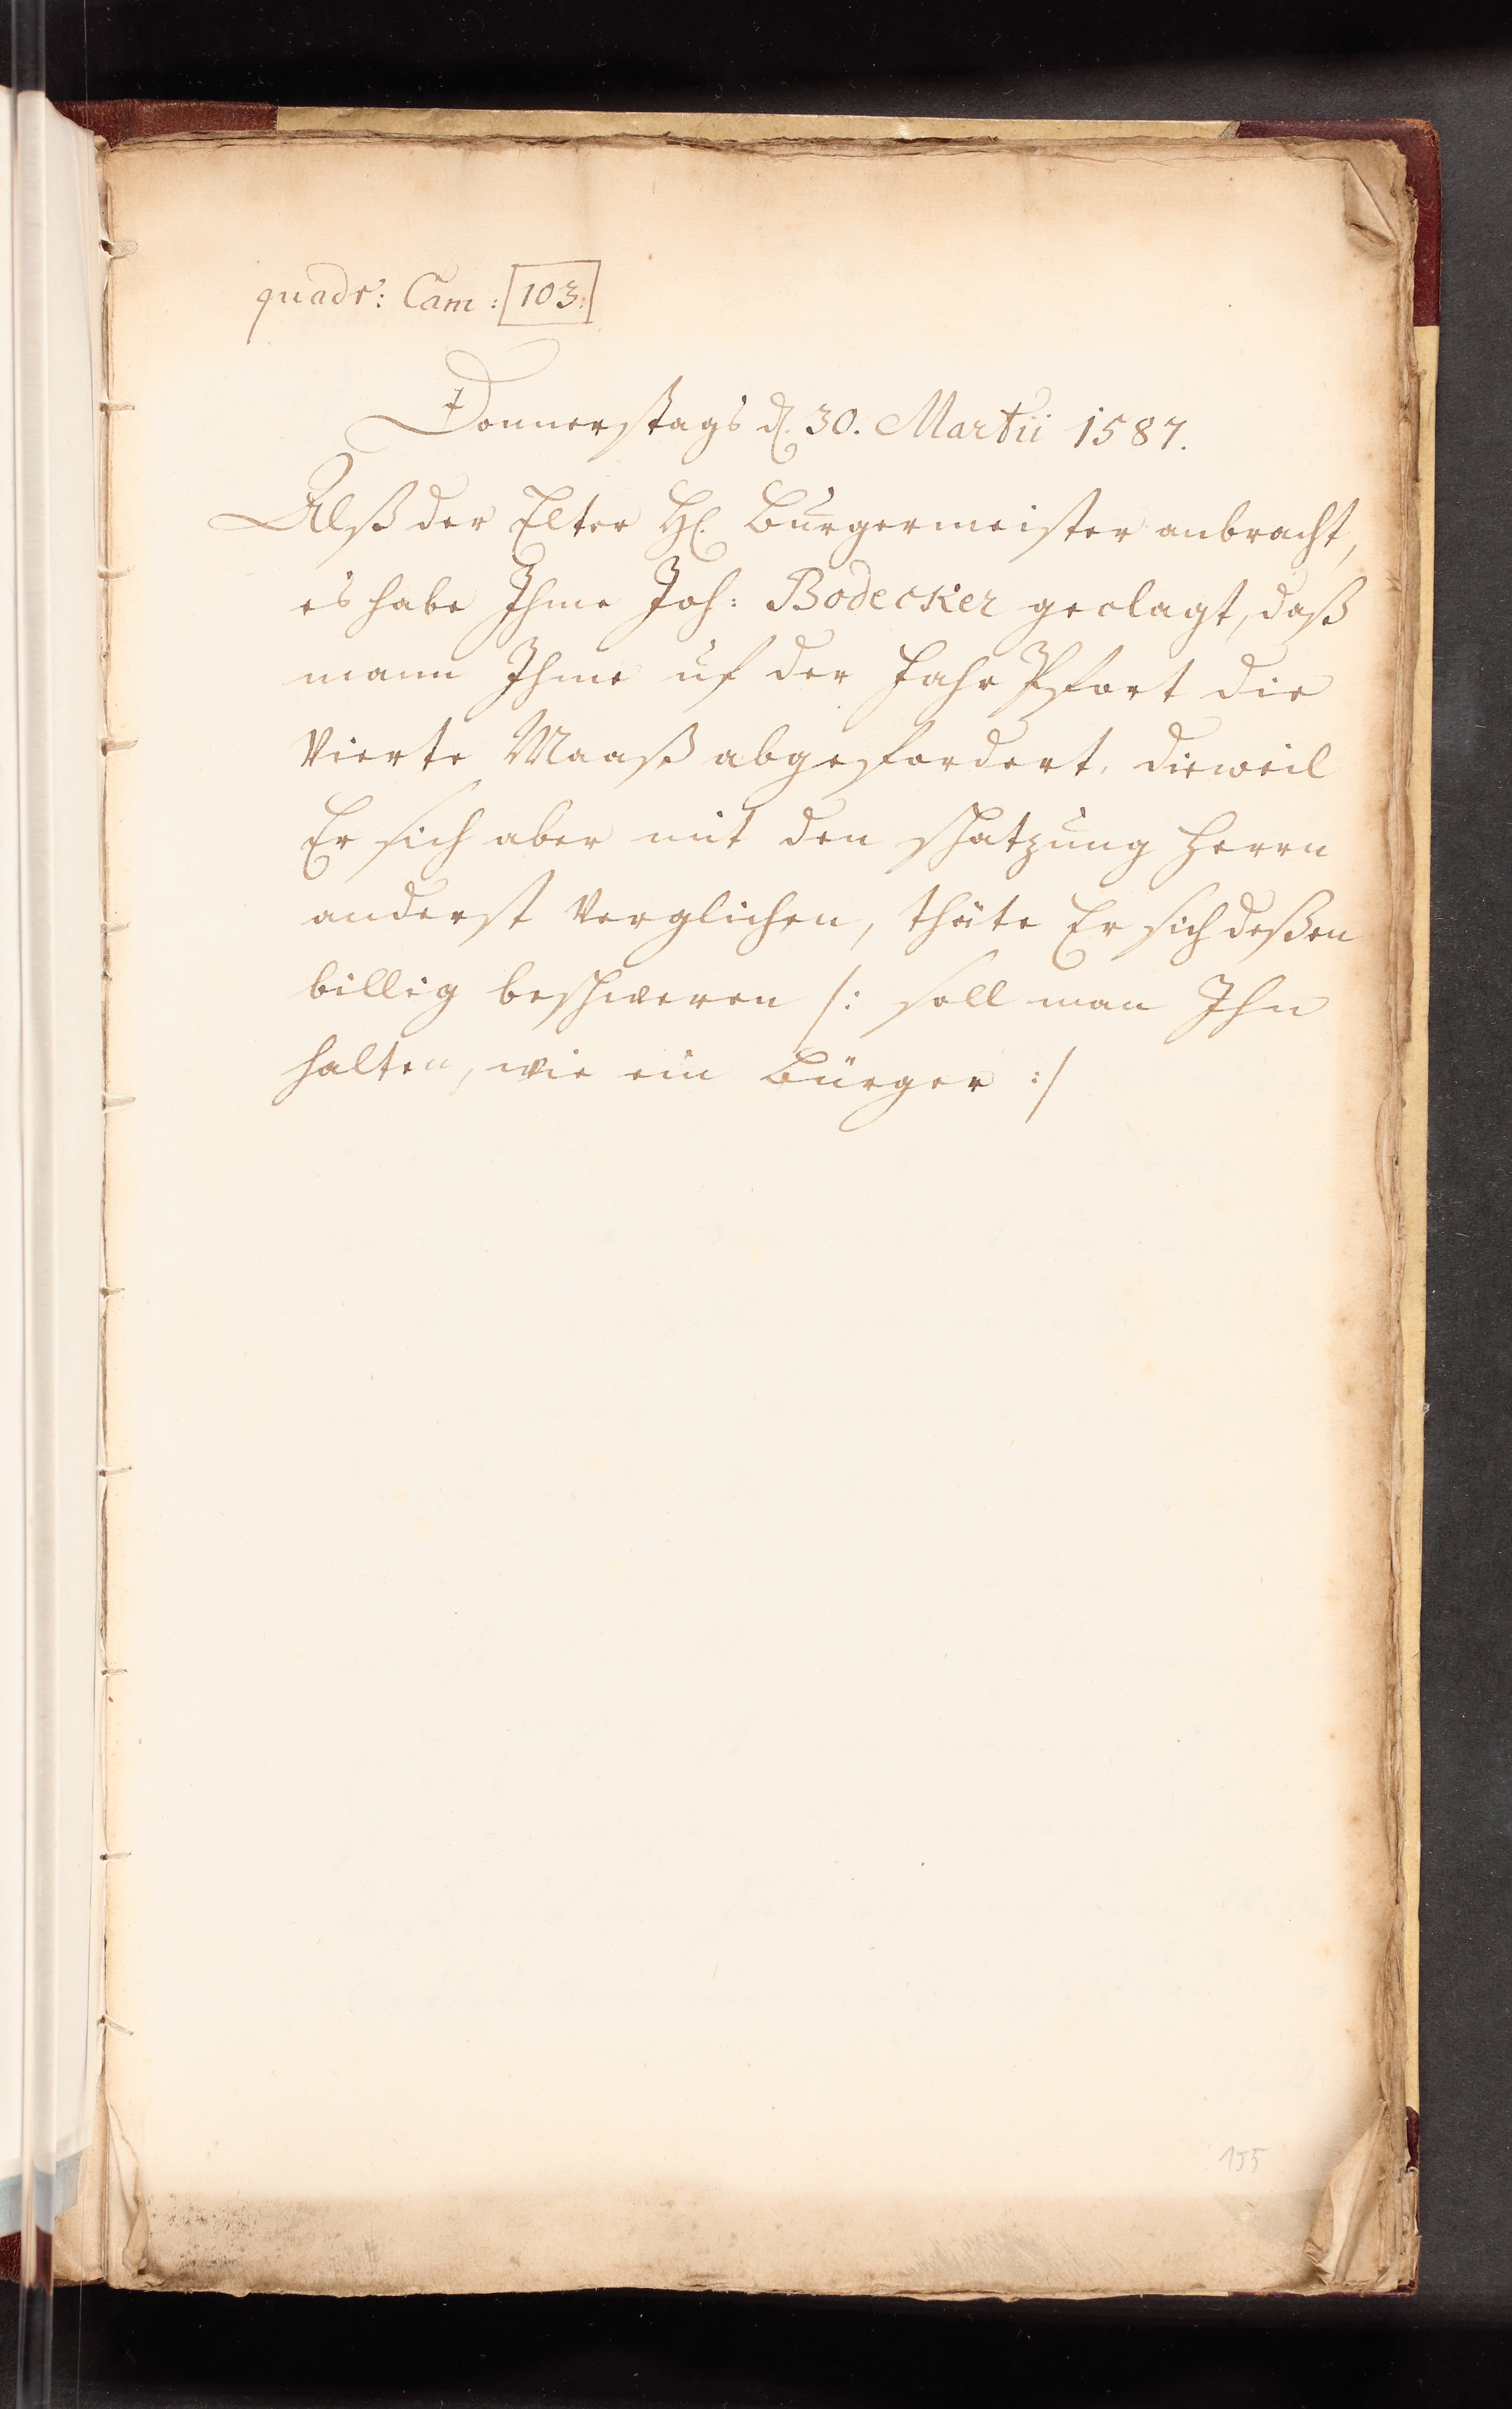 quadr: Cam: 103:
Donnerstags d. 30. Martii 1587.
Alß der Elter H. Burgermeister anbracht,
es habe Ihme Joh: Bodecker geclagt, daß
mann Ihme uf der Fahr Pfort die
Vierte Maaß abgefordert, dieweil
Er sich aber mit den schatzung Herrn
anderst verglichen, thäte Er sich deßen
billig beschweren /: soll man Ihn
halten, wie ein Bürger :/
155